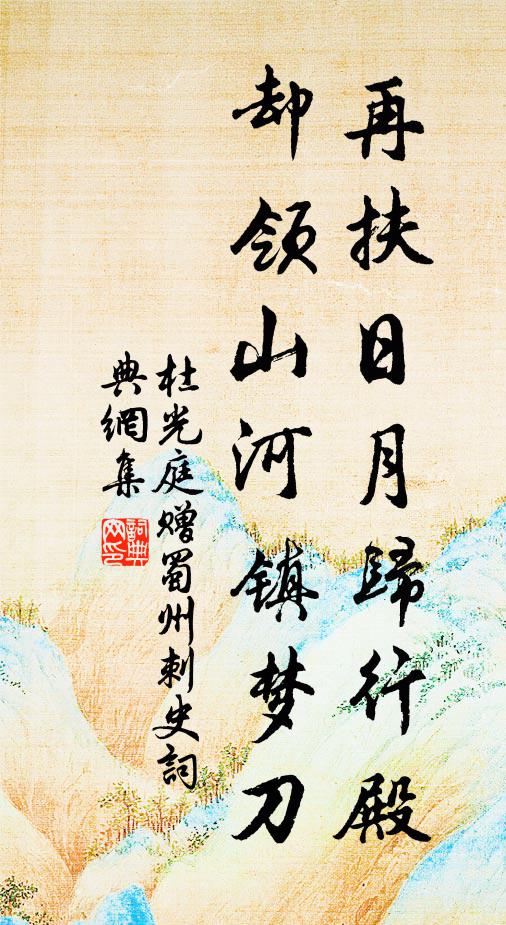 再扶日月歸行殿
却領山河镇梦刀
杜光庭赠蜀州刺史詞
典網集
詞典
网印